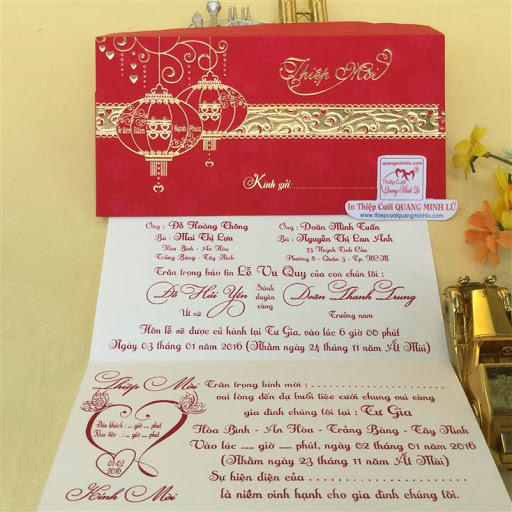 Thiệp Mời
Trăm Năm
Hạnh Phúc
Kính gửi:
quangminhlu.com
Thiệp Cưới
Quang Minh Lữ
In Thiệp Cưới QUANG MINH LỮ
www.thiepcuoiquangminhlu.com
Ông : Đỗ Hoàng Thông
Bà : Mai Thị Lựu
Hòa Bình - An Hòa
Trảng Bàng - Tây Ninh
Ông : Doãn Minh Tuấn
Bà : Nguyễn Thị Lan Anh
23 Huỳnh Tịnh Của
Phường 8 - Quận 3 - Tp. HCM
Trân trọng báo tin Lễ Vu Quy của con chúng tôi :
Đỗ Hải Yến
Út nữ
Sánh
duyên
cùng
Doãn Thanh Trung
Trưởng nam
Hôn lễ sẽ được cử hành tại Tư Gia, vào lúc 6 giờ 00 phút
Ngày 03 tháng 01 năm 2016 (Nhằm ngày 24 tháng 11 năm Ất Mùi)
Thiệp Mời
Đón khách : ... giờ ... phút
Khai tiệc : ... giờ ... phút
01-02
2016
Kính Mời
Trân trọng kính mời : . . . . . . . . . . . . . . . . . . . . . . . .
vui lòng đến dự buổi tiệc cưới chung vui cùng
gia đình chúng tôi tại : Tư Gia
Hòa Bình - An Hòa - Trảng Bàng - Tây Ninh
Vào lúc ..... giờ ..... phút, ngày 02 tháng 01 năm 2016
(Nhằm ngày 23 tháng 11 năm Ất Mùi)
Sự hiện diện của . . . . . . . . . . . . . . . . . . .
là niềm vinh hạnh cho gia đình chúng tôi.